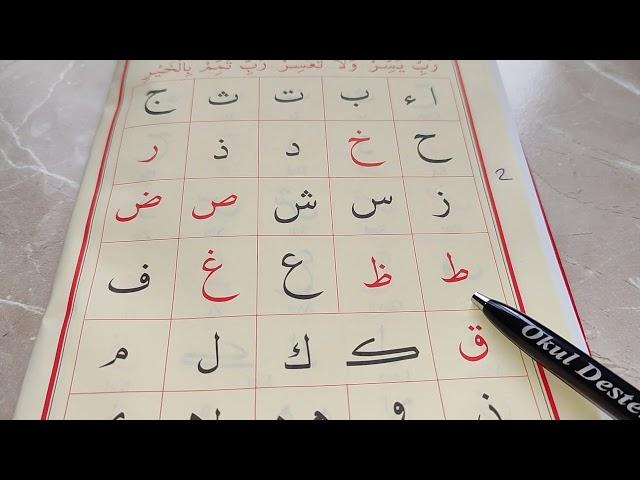 رَبِّ يَسِّرْ وَلَا تُعَسِّرْ رَبِّ تَمِّمْ بِالْخَيْرِ
ا ء ب ت ث ج
ح خ د ذ ر
ز س ش ص ض
ط ظ ع غ ف
ق ک ك ل م
ن و
2
Okul Deste